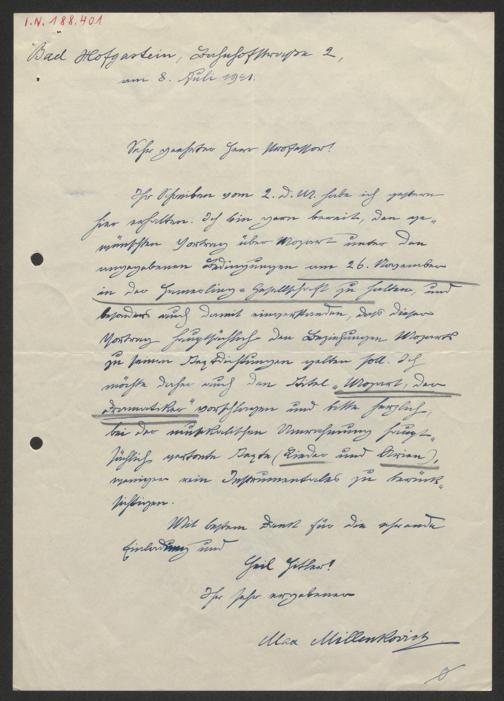 I.N. 188.401
Bad Hofgastein, Bahnhofstraße 2,
am 8. Juli 1941.
Sehr geehrter Herr Professor!
Ihr Schreiben vom 2. d. M. habe ich gestern
hier erhalten. Ich bin gern bereit, den ge-
wünschten Vortrag über Mozart unter den
angegebenen Bedingungen am 26. November
in der Hamerling-Gesellschaft zu halten, und
besonders auch damit einverstanden, daß dieser
Vortrag hauptsächlich den Beziehungen Mozarts
zu seinen Textdichtungen gelten soll. Ich
möchte daher auch den Titel "Mozart, der
Dramatiker" vorschlagen und bitte herzlich,
bei der musikalischen Umrahmung haupt-
sächlich vertonte Texte (Lieder und Arien),
weniger rein Instrumentales zu berück-
sichtigen.
Mit bestem Dank für die ehrende
Einladung und
Heil Hitler!
Ihr sehr ergebener
Max Millenkovich